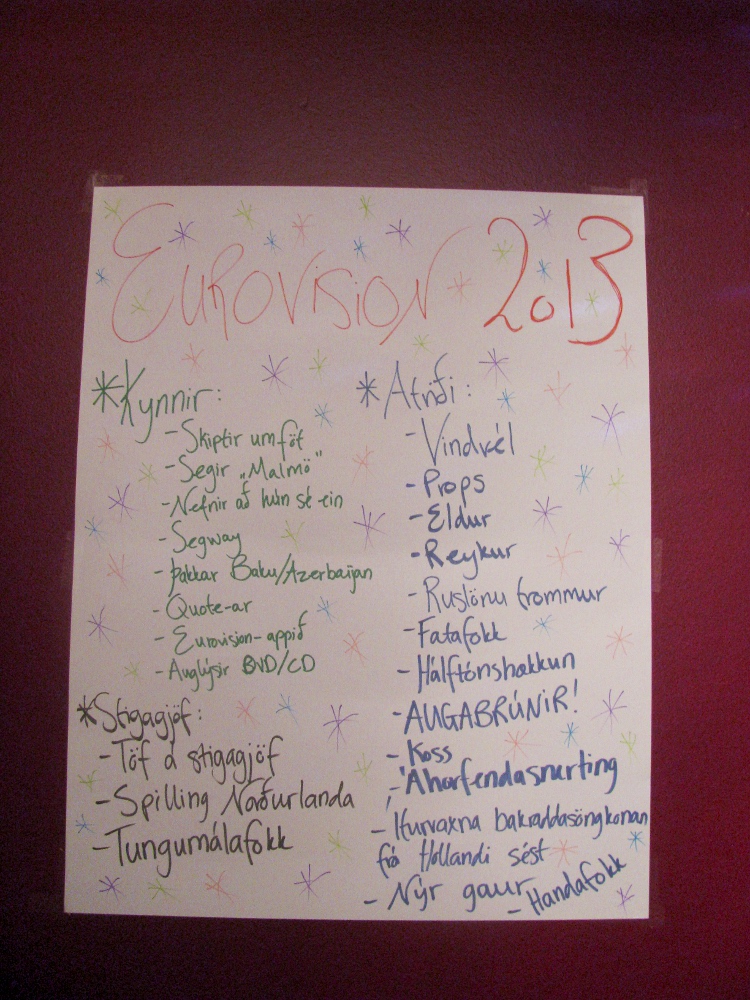 EUROVISION 2013
*Kynnir:
-Skiptir um föt
-Segir „Malmö"
-Nefnir að hún sé ein
-Segway
-Þakkar Baku/Azerbaijan
-Quote-ar
-Eurovision-appið
-Auglýsir DVD/CD
*Stigagjöf:
-Töf á stigagjöf
-Spilling Norðurlanda
-Tungumálafokk
*Atriði:
-Vindvél
-Props
-Eldur
-Reykur
-Ruslönu trommur
-Fatafokk
-Hálftónshækkun
-AUGABRÚNIR!
-Koss
-Áhorfendasnerting
-Íturvaxna bakraddasöngkonan
frá Hollandi sést
-Nýr gaur
-Handafokk